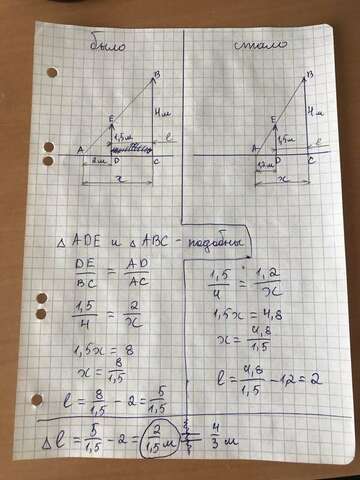 было
стало
B
B
E
4 м
E
4 м
1,5 м
1,5 м
l
l
A
A
2 м
D
C
1,2
D
C
x
x
△ ADE и △ ABC - подобны
DE/BC = AD/AC
1,5/4 = 2/x
1,5x = 8
x = 8/1,5
l = 8/1,5 - 2 = 5/1,5
1,5/4 = 1,2/x
1,5x = 4,8
x = 4,8/1,5
l = 4,8/1,5 - 1,2 = 2
△l = 5/1,5 - 2 = 2/1,5 м = 4/3 м